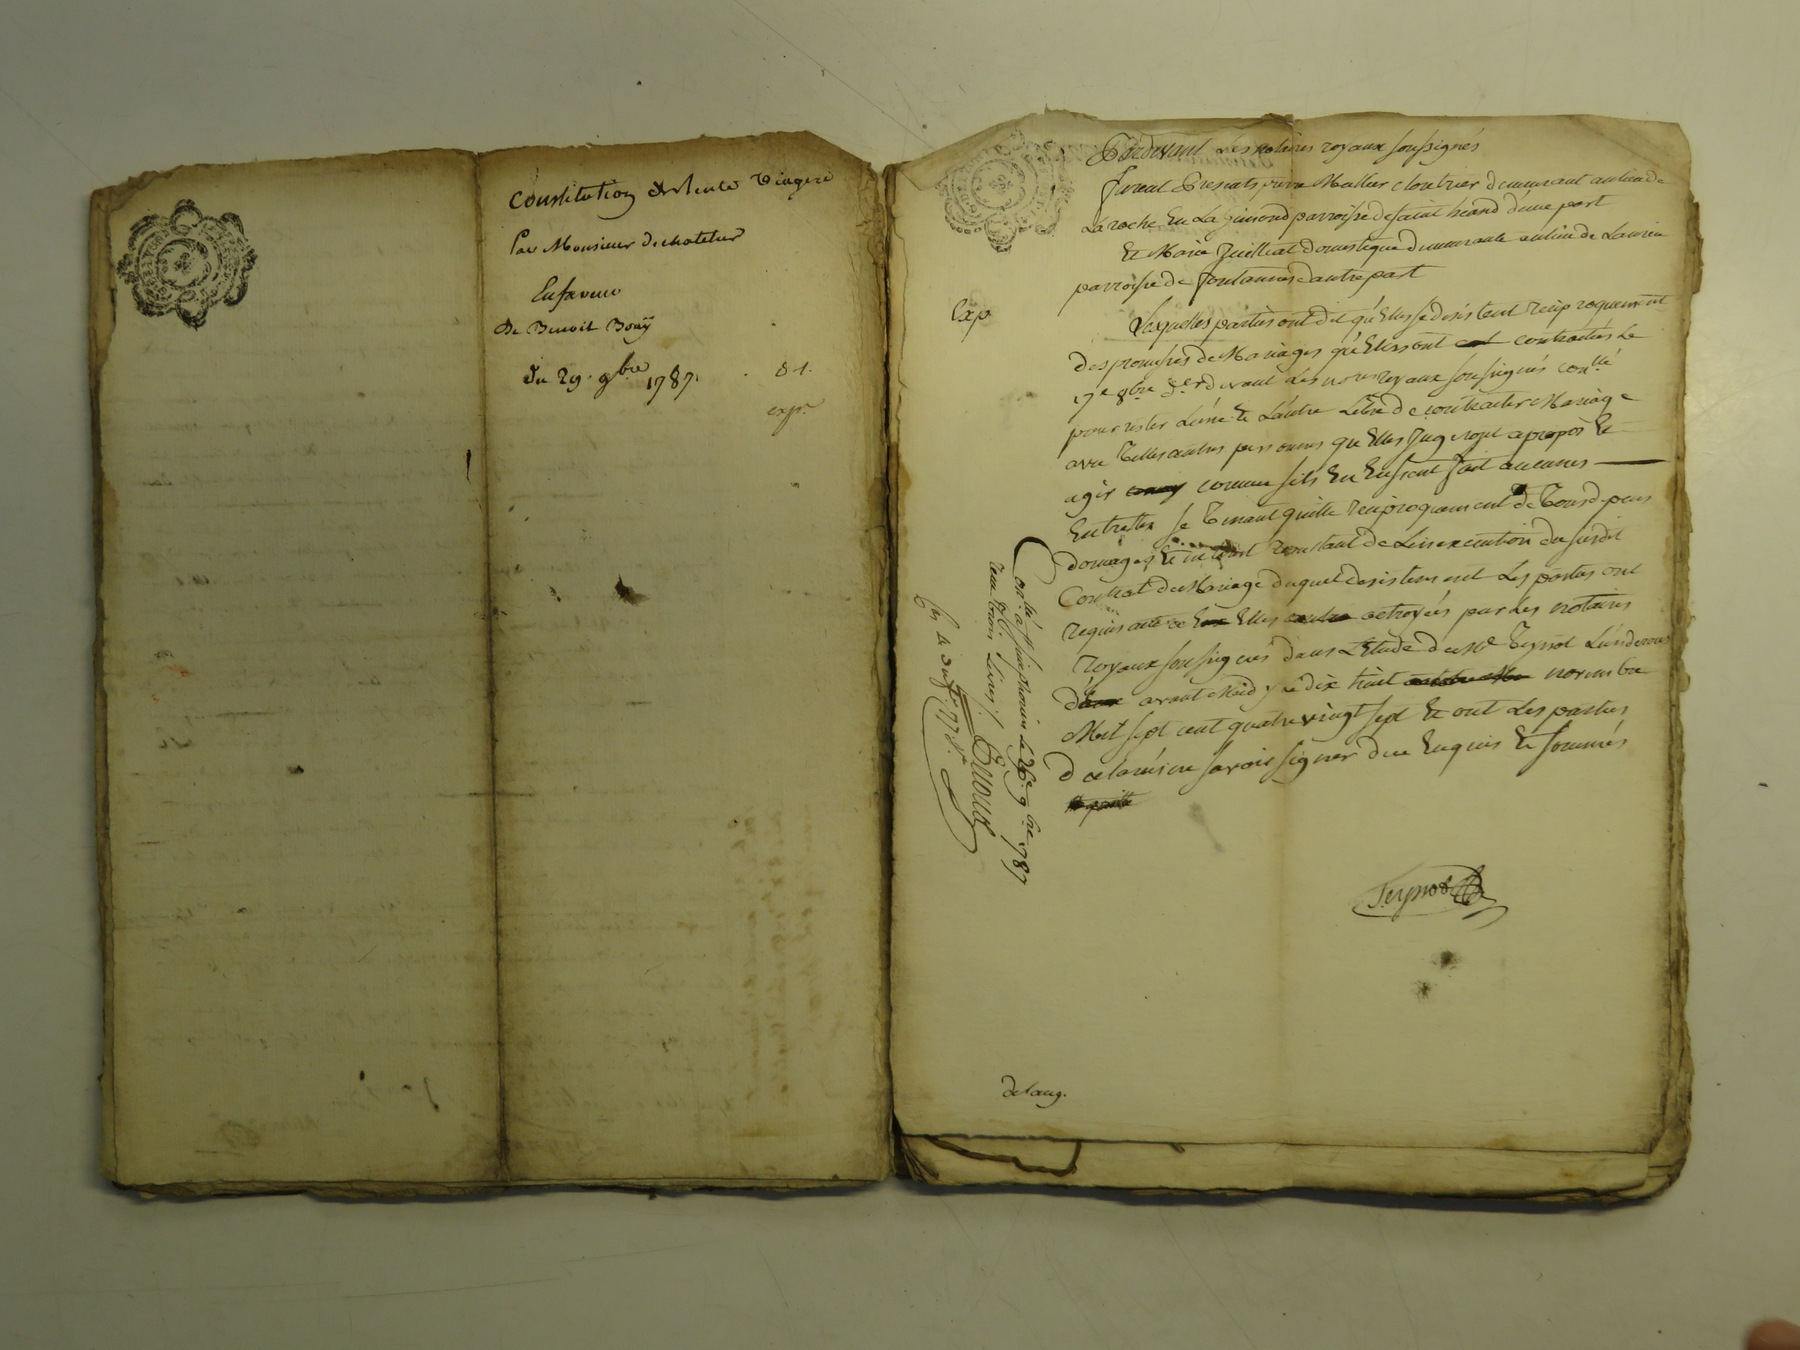 Constitution de Rente Viagere
Par Monsieur dechatelus
En faveur
De Benoit Bouÿ
Du 29. 9bre 1787.
81.
expé
Pardevant Les notaires royaux soussignés
furent presents pierre Mallier cloutier demeurant au lieu de
La roche En La gimond parroisse de saint heand d'une part
Et Marie Juilliat domestique demeurante au lieu de
parroisse de fontannes dautre part
Exp.
Lesquelles parties ont dit qu'Elles se desistent reciproquement
des promesses de Mariages qu'Elles ont contractées Le
17e 8bre der devant Les nores royaux soussignés conllé
pour rester L'une Et L'autre Libre de contracter Mariage
avec Telles autres personnes qu'Elles Jugeront apropos Et
agir comme sils En Eussent fait aucunes
Entr'elles se Tenant quitte reciproquement de Tous depens
domages Et interest resultant de Linexecution du susdit
Contrat de Mariage duquel desistement Les parties ont
requis acte a Elles octroyées par Les notaires
royaux soussignés dans L'Etude de Me Teyssot L'un deux
avant Midy ce dix huit novembre
Mil sept cent quatre vingt sept Et ont Les parties
declarés ne savoir signer de ce Enquis Et sommés
Teyssot
Conllé a st simphorien Le 26e 9bre 1787